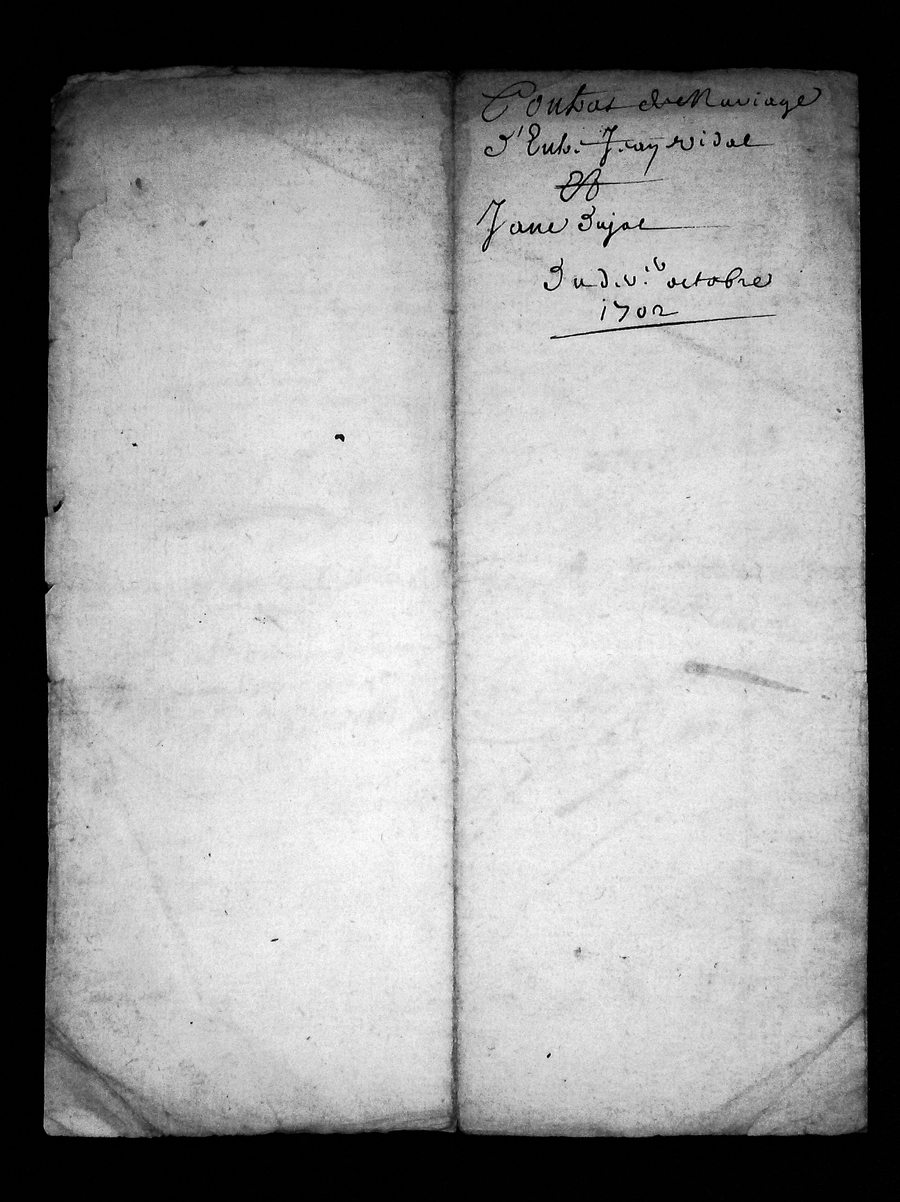 Contrat de Mariage
D'Entre Jean vidal
Et
Jane Pujol
Du d. v.e octobre
1702